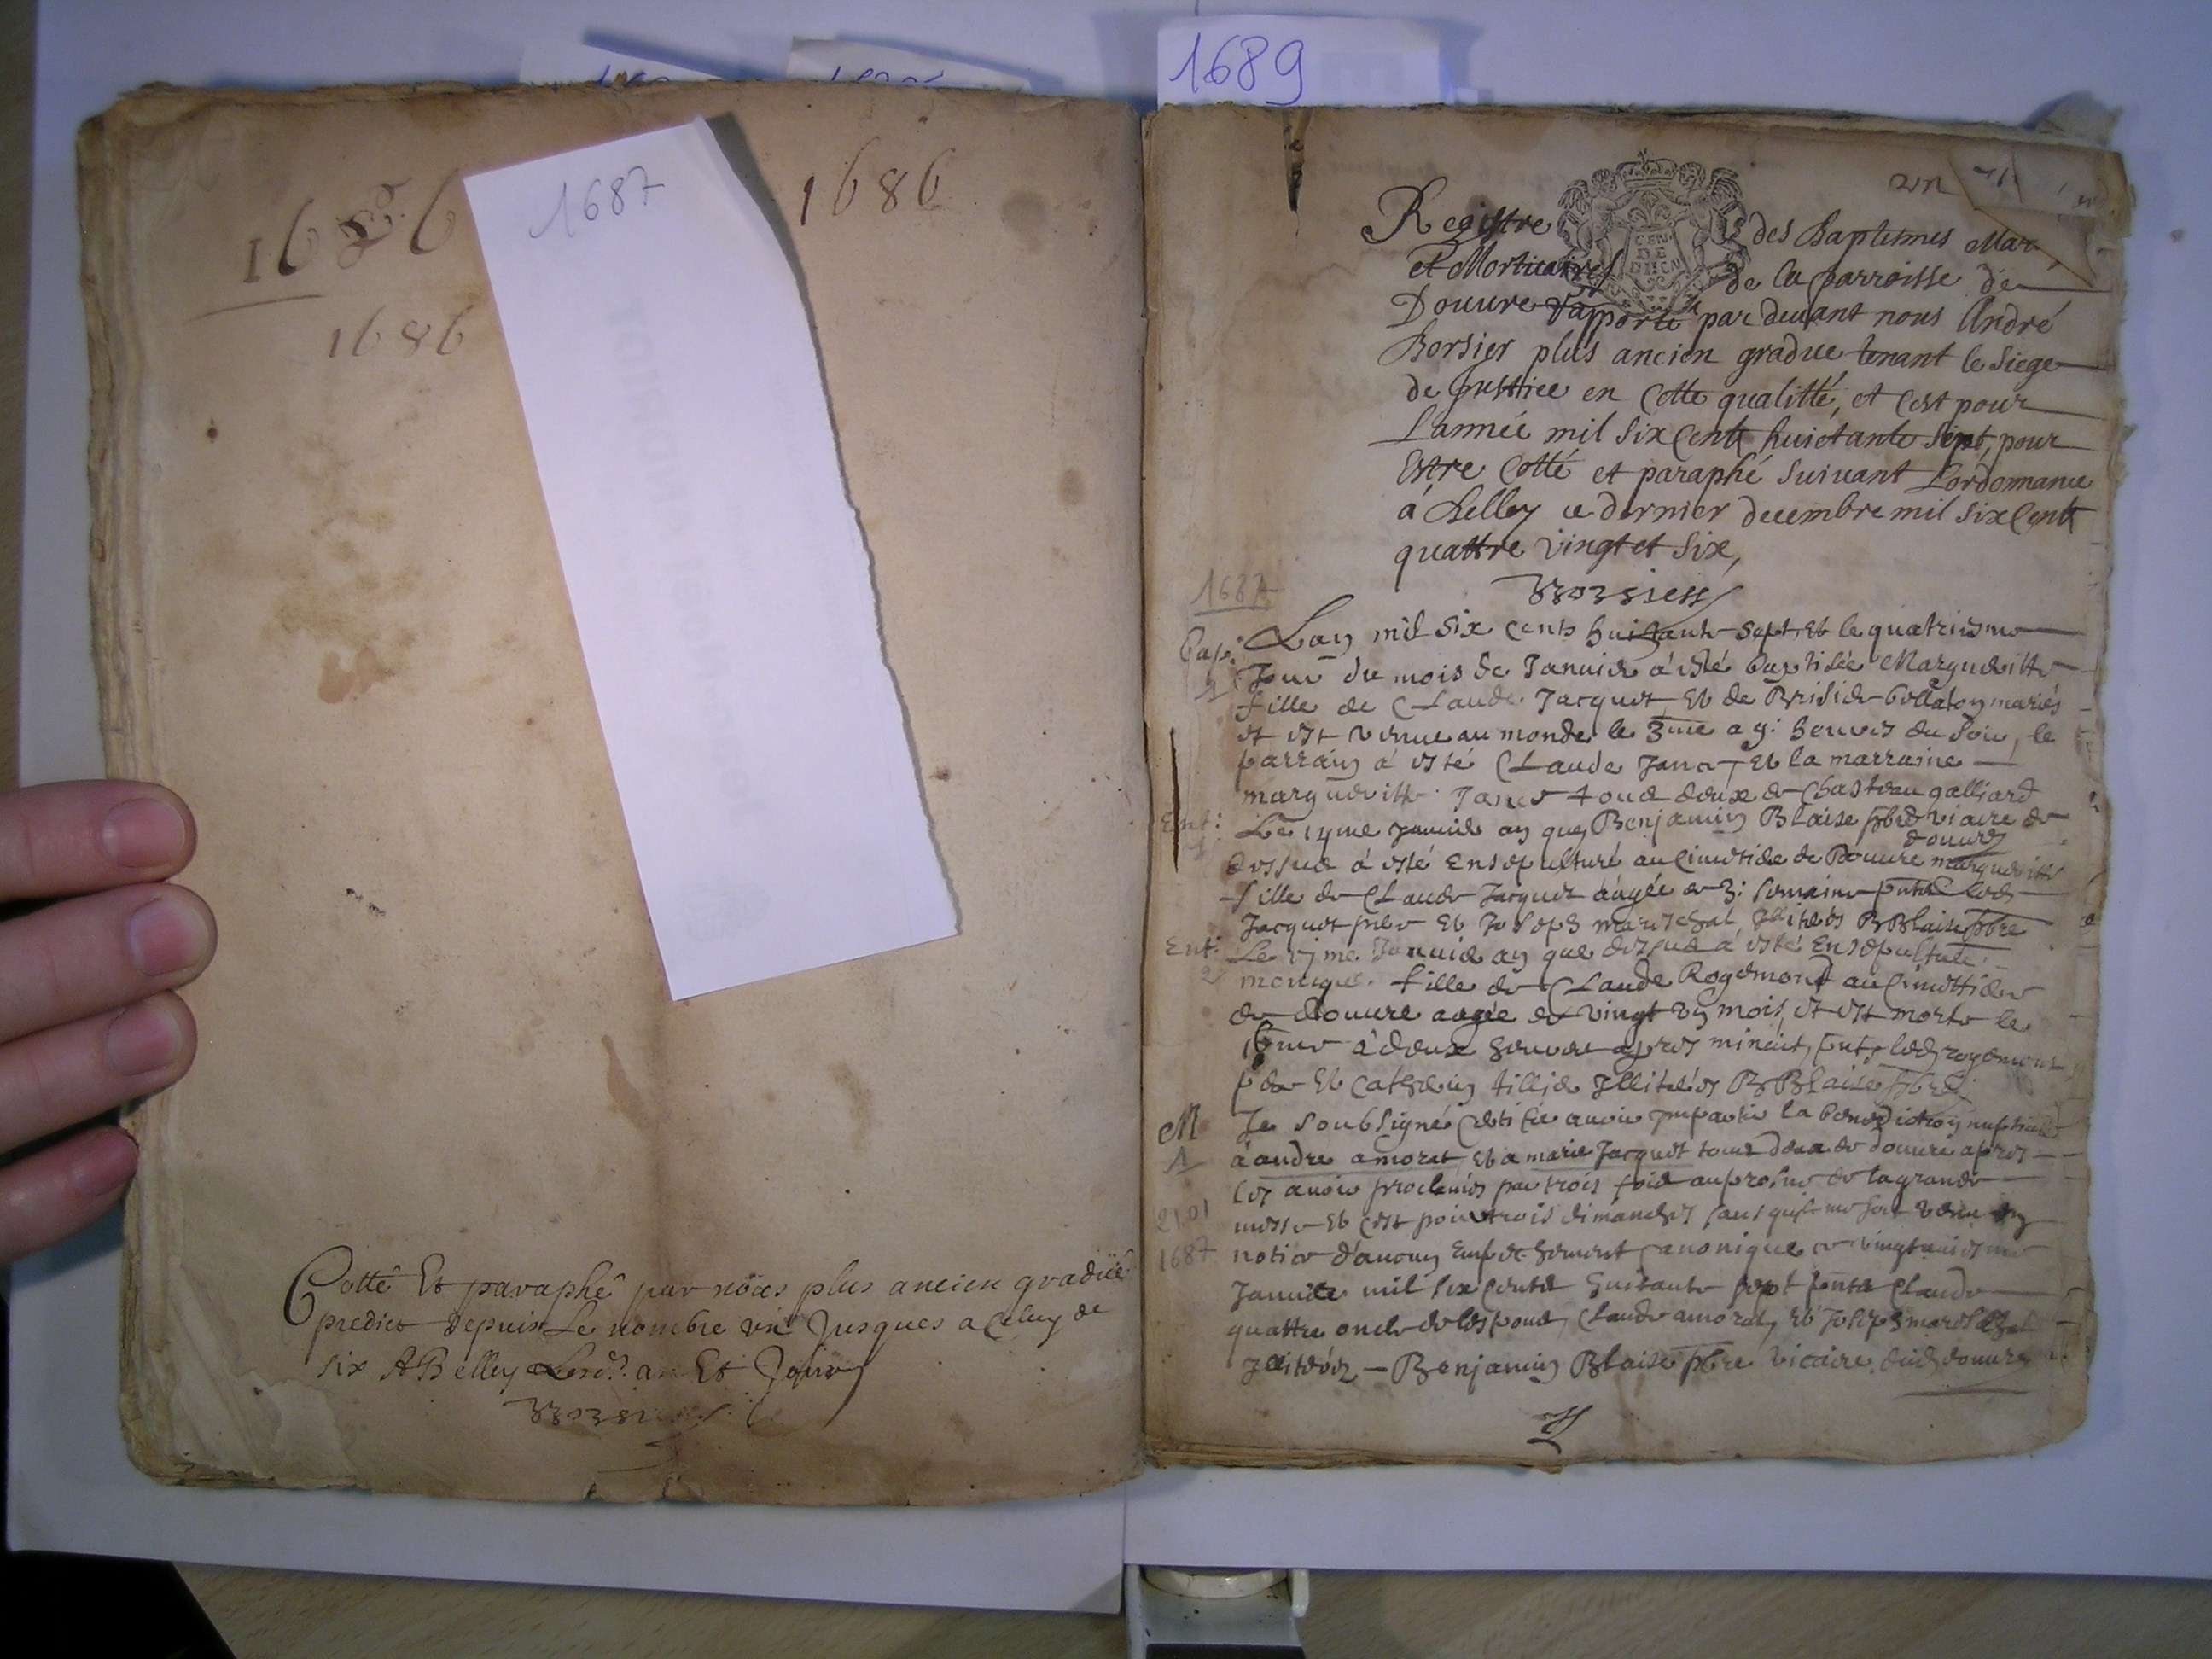 1689
1686
1687
1686
1686
Cotté Et paraphé par nous plus ancien gradué
predict depuis Le nombre un Jusques a Celuy de
six A Belley an Et Jour
Borsier
un
Registre des Baptemes Mar
et Mortuaires de la parroisse de
Douvre rapporté par devant nous André
Borsier plus ancien gradue tenant le siege
de Justice en Cette qualitté, et C'est pour
L'année mil six Cent huictante sept, pour
Estre Cotté et paraphé suivant L'ordonnance
à Belley ce dernier decembre mil six Cent
quattre vingt et six,
Borsier
1687
Bap: Lan mil six cents huictante sept, Et le quatriesme
1 Jour du mois de Janvier à esté baptisée Margueritte
fille de Claude Jacquet Et de mariés
et est venue au monde le 3me a 9: heures du soir, le
parrain à esté Claude Et la marraine
margueritte tous deux de Chasteau galliard
Ent: Le Janvier an que Benjamin Blaise pbre vicaire de
douvre
1 dessus à esté ensepulturé au Cimetiere de Douvre margueritte
fille de Claude Jacquet aagée de 3: semaines
Jacquet pere Et Joseph mareschal Illiterés B Blaise pbre
Ent: Le Janvier an que dessus a esté ensepulturé
2 monique fille de Claude Rogemond au Cimettiere
de douvre aagée de vingt un mois, et est morte le
à deux heures apres minuict,
pere Et Catherin Illiterés B Blaise pbre
M Je soubsigné Certifie avoir imparti la benediction nuptiale
1 à andre amorat, Et a marie Jacquet tous deux de douvre apres
les avoir proclamés par trois fois au prosne de la grande
21.01 messe Et C'est pour trois dimanches sans qu'il me soit venu en
1687 notice d'aucun Empechement Canonique ce vingtuniesme
Janvier mil six Cents huictante sept Claude
quattre oncle de Claude amorat, Et Joseph mareschal
Illiterés — Benjamin Blaise pbre vicaire dud douvre